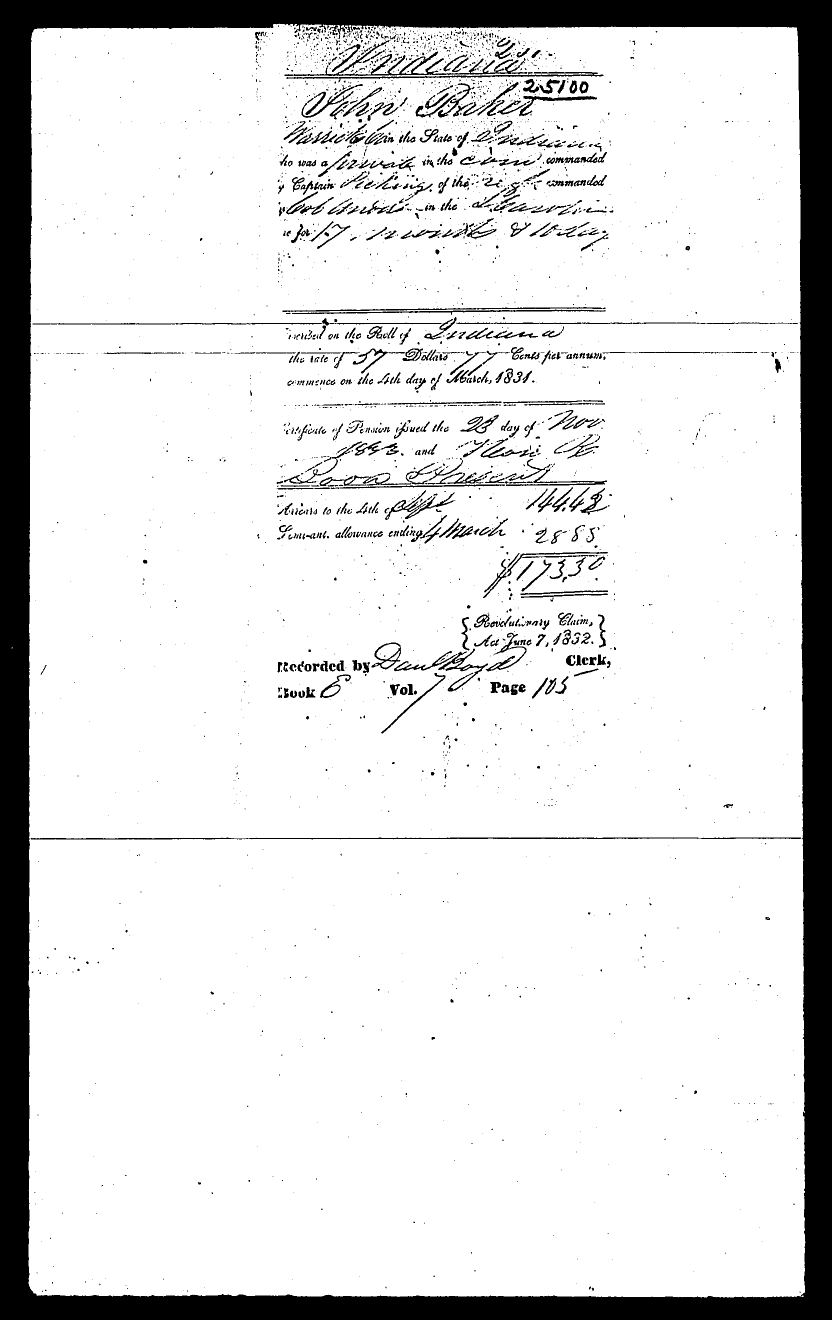 Indiana
25100
John Baker
Warrick Co in the State of Indiana
ho was a private in the com commanded
y Captain of the regt commanded
y Col in the S Carolin
e for 17 months & 10 days
cribed on the Roll of Indiana
the rate of 57 Dollars 77 Cents per annum,
ommence on the 4th day of March, 1831.
ertificate of Pension issued the 23 day of Nov
1833. and
Boon Present
Arrears to the 4th of Sept 144.43
Semi-ant. allowance ending 4 March 28 88
$173.30
{ Revolutionary Claim, }
{ Act June 7, 1832. }
Recorded by Danl Boyd Clerk,
Book E Vol. 7 Page 105